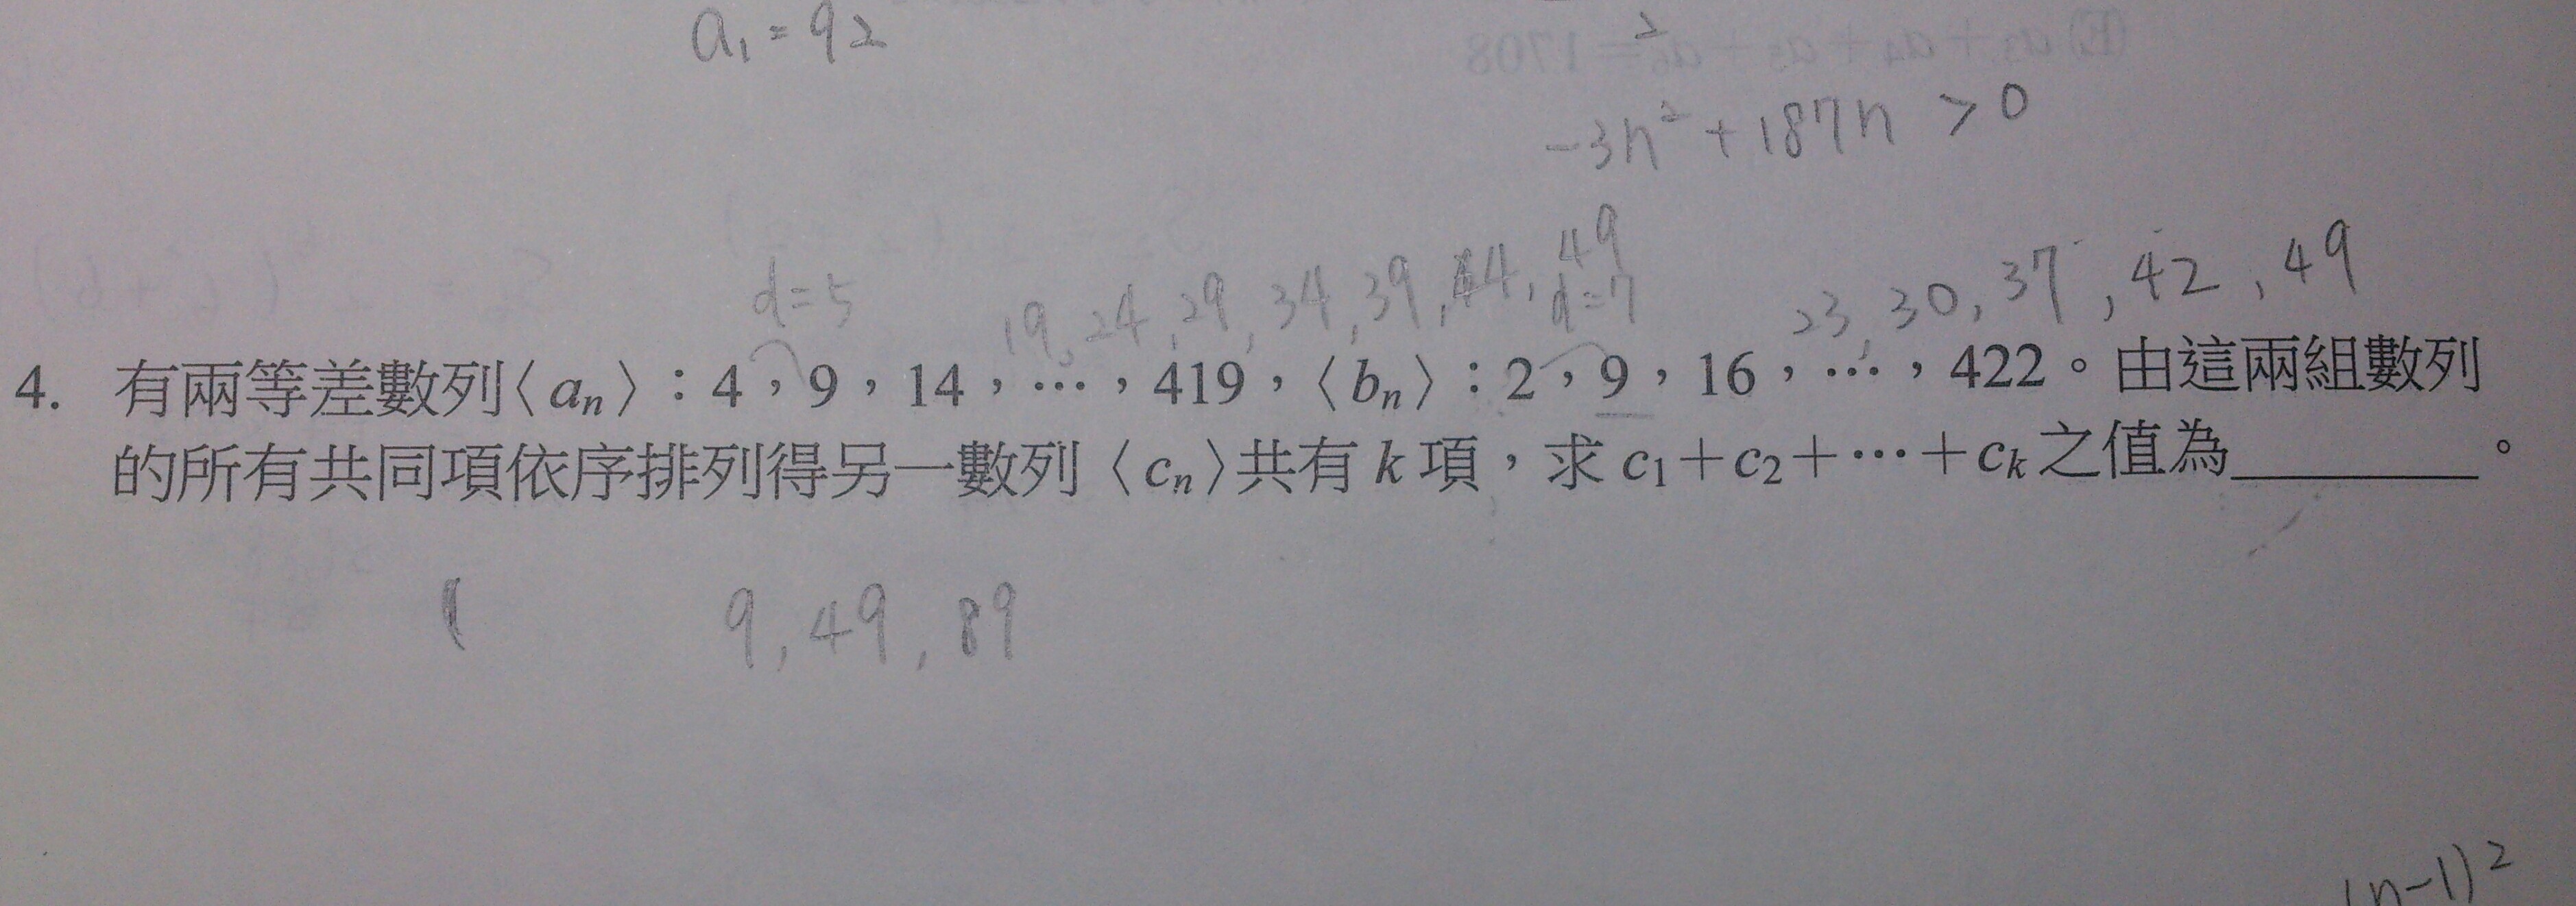 a₁ = 92
2
-3n² + 187n > 0
d=5 19, 24, 29, 34, 39, 44, 49 d=7 23, 30, 37, 42, 49
4. 有兩等差數列〈aₙ〉：4，9，14，⋯，419，〈bₙ〉：2，9，16，⋯，422。由這兩組數列
的所有共同項依序排列得另一數列〈cₙ〉共有 k 項，求 c₁＋c₂＋⋯＋cₖ 之值為________。
9, 49, 89
(n-1)²